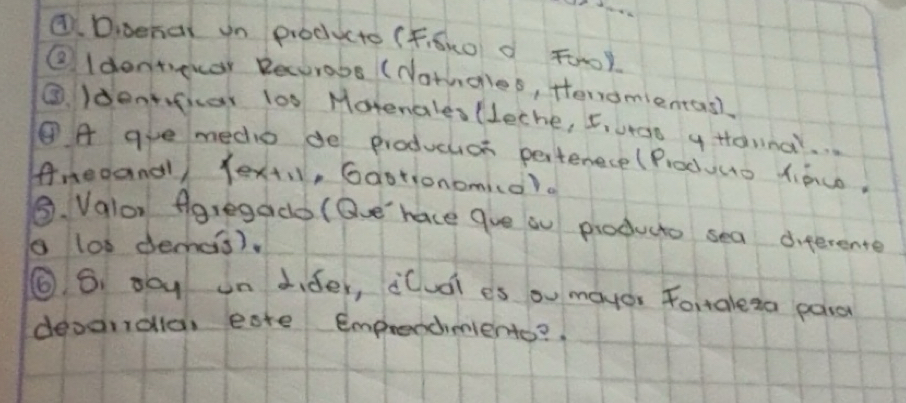 ①. Diseñar un producto (Físico o Foto).
② Identificar Recursos (Naturales, Herramientas).
③. Identificar los Materiales (Leche, Frutas y Harina)...
④. A que medio de producción pertenece (Producto Típico,
Artesanal, Textil, Gastronomico).
⑤. Valor Agregado (Qué hace que su producto sea diferente
a los demás).
⑥. Si soy un Lider, ¿Cuál es su mayor Fortaleza para
desarrollar este Emprendimiento?.